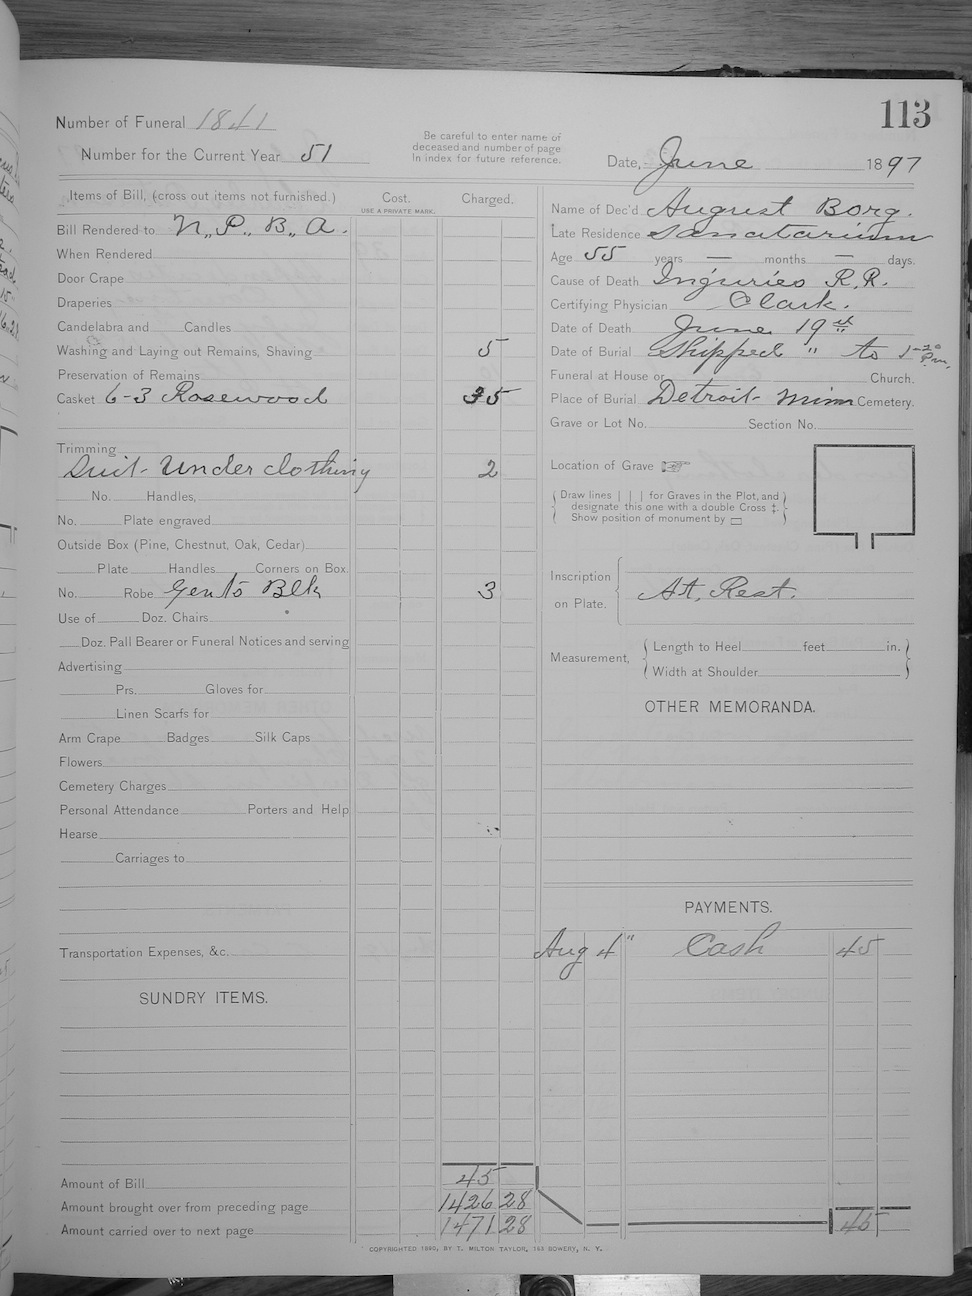 113
Number of Funeral 1841
Number for the Current Year 51
Be careful to enter name of
deceased and number of page
In index for future reference.
Date, June 1897
Items of Bill, (cross out items not furnished.) Cost. Charged.
USE A PRIVATE MARK.
Bill Rendered to N.. P.. B.. A.
When Rendered
Door Crape
Draperies
Candelabra and Candles
Washing and Laying out Remains, Shaving 5
Preservation of Remains
Casket 6-3 Rosewood 35
Trimming
Suit- Under clothing 2
No. Handles,
No. Plate engraved
Outside Box (Pine, Chestnut, Oak, Cedar)
Plate Handles Corners on Box.
No. Robe Gents Blk 3
Use of Doz. Chairs
Doz. Pall Bearer or Funeral Notices and serving
Advertising
Prs. Gloves for
Linen Scarfs for
Arm Crape Badges Silk Caps
Flowers
Cemetery Charges
Personal Attendance Porters and Help
Hearse
Carriages to
Transportation Expenses, &c.
SUNDRY ITEMS.
Amount of Bill 45
Amount brought over from preceding page 1426 28
Amount carried over to next page 1471 28
Name of Dec'd August Borg.
Late Residence Sanatarium
Age 55 years — months — days.
Cause of Death Injuries R.R.
Certifying Physician Clark.
Date of Death June 19th
Date of Burial Shipped " to 1-20 P.m.
Funeral at House or Church.
Place of Burial Detroit- Minn Cemetery.
Grave or Lot No. Section No.
Location of Grave ☞
Draw lines | | | for Graves in the Plot, and
designate this one with a double Cross ‡.
Show position of monument by ▭
Inscription
on Plate. At, Rest.
Measurement, Length to Heel feet in.
Width at Shoulder
OTHER MEMORANDA.
PAYMENTS.
Aug 4" Cash 45
45
COPYRIGHTED 1890, BY T. MILTON TAYLOR, 163 BOWERY, N. Y.